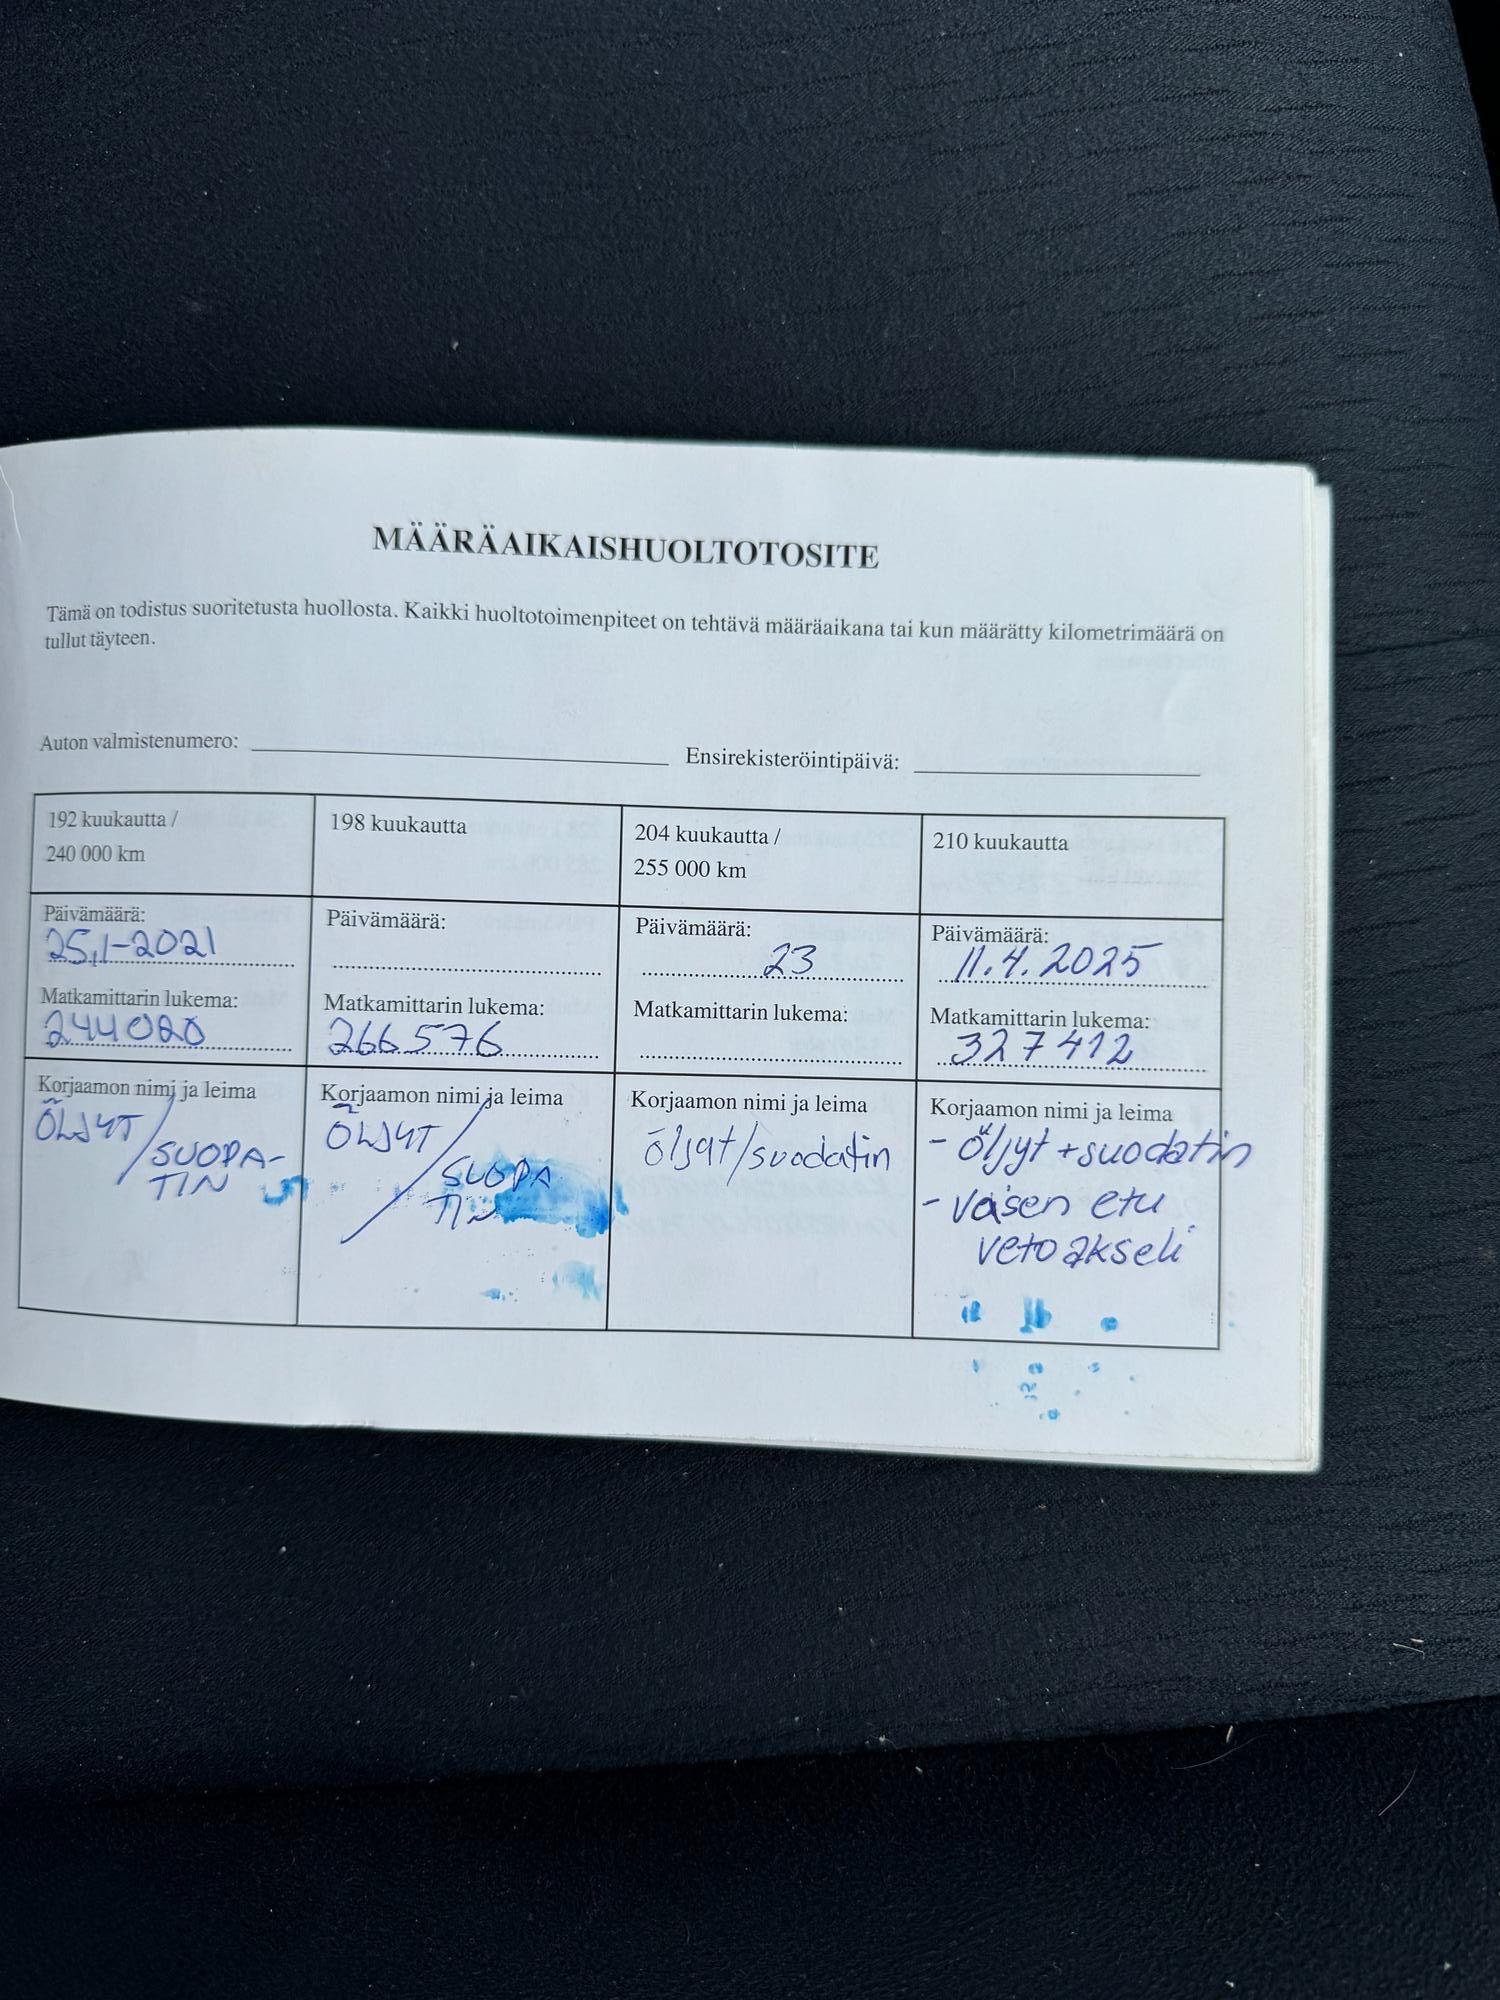 MÄÄRÄAIKAISHUOLTOTOSITE
Tämä on todistus suoritetusta huollosta. Kaikki huoltotoimenpiteet on tehtävä määräaikana tai kun määrätty kilometrimäärä on
tullut täyteen.
Auton valmistenumero:
Ensirekisteröintipäivä:
192 kuukautta /
240 000 km
Päivämäärä:
25.1-2021
Matkamittarin lukema:
244020
Korjaamon nimi ja leima
ÖLJYT /
SUODA-
TIN
198 kuukautta
Päivämäärä:
Matkamittarin lukema:
266576
Korjaamon nimi ja leima
ÖLJYT /
SUODA
TIN
204 kuukautta /
255 000 km
Päivämäärä:
23
Matkamittarin lukema:
Korjaamon nimi ja leima
öljyt/suodatin
210 kuukautta
Päivämäärä:
11.4.2025
Matkamittarin lukema:
327412
Korjaamon nimi ja leima
- öljyt + suodatin
- vasen etu
vetoakseli